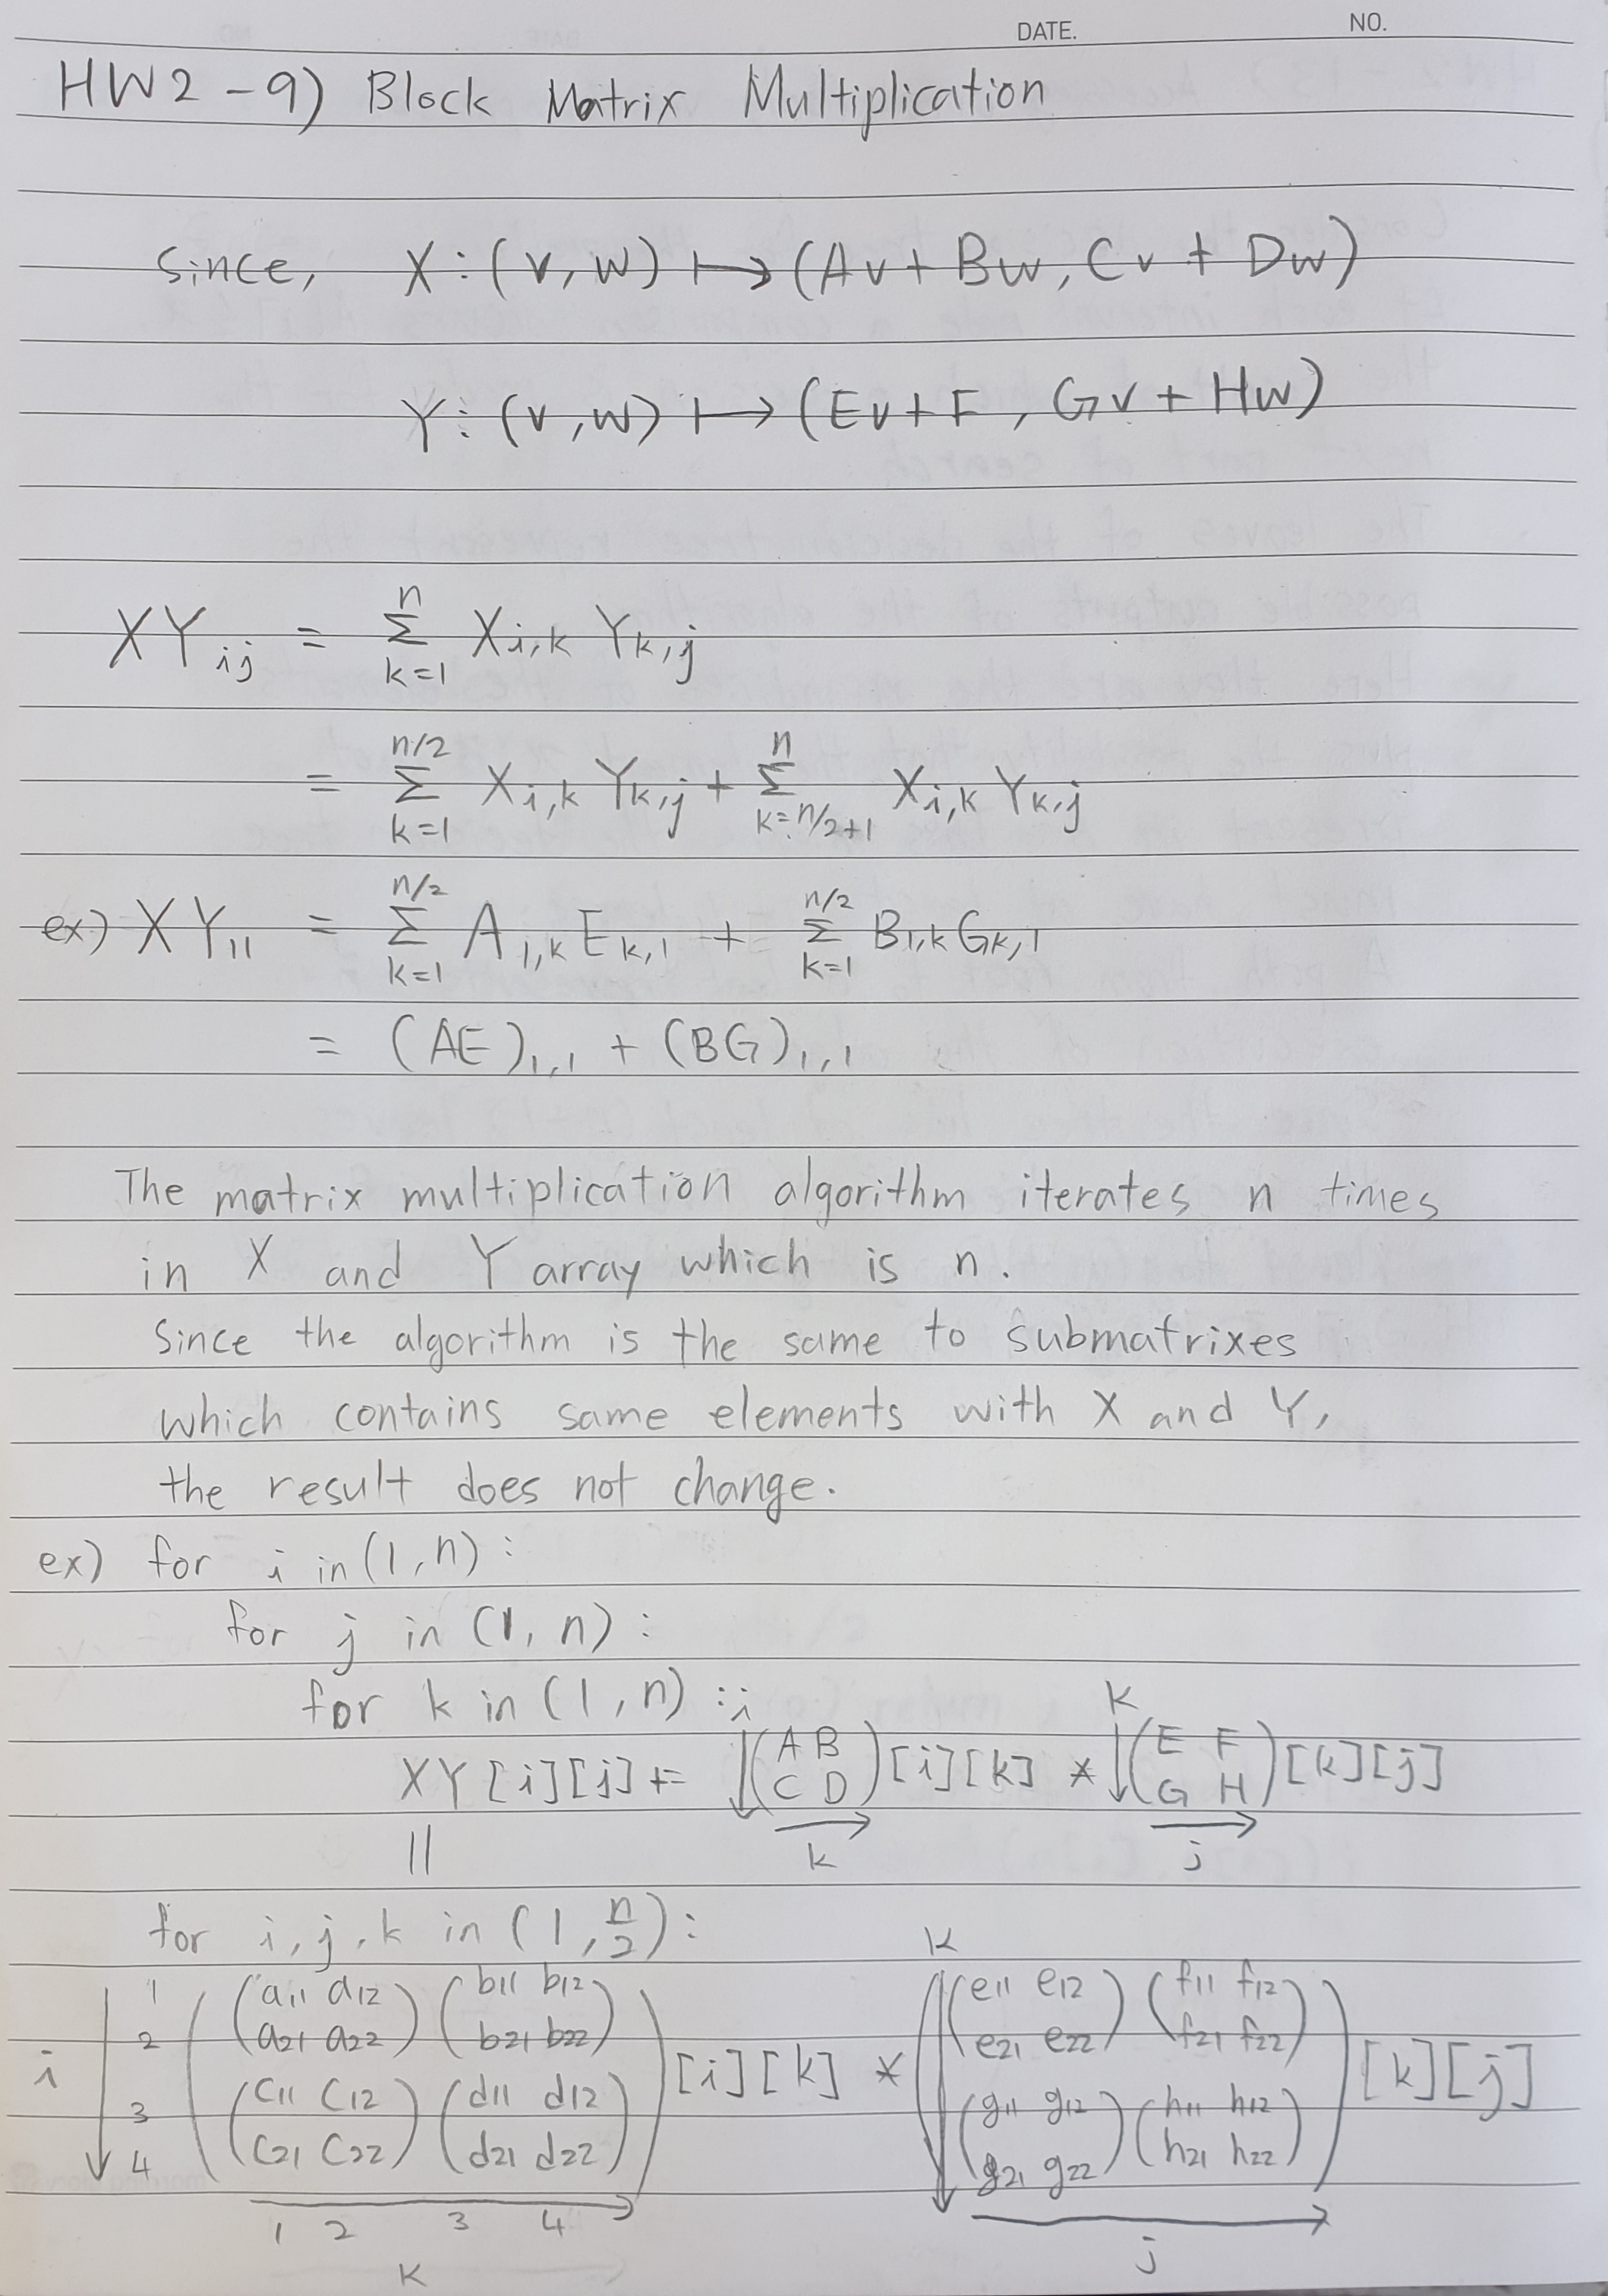 DATE. NO.
HW2-9) Block Matrix Multiplication
Since, X : (v, w) ↦ (Av + Bw, Cv + Dw)
Y : (v, w) ↦ (Ev + F, Gv + Hw)
XY_ij = Σ_{k=1}^{n} X_{i,k} Y_{k,j}
= Σ_{k=1}^{n/2} X_{i,k} Y_{k,j} + Σ_{k=n/2+1}^{n} X_{i,k} Y_{k,j}
ex) XY_11 = Σ_{k=1}^{n/2} A_{1,k} E_{k,1} + Σ_{k=1}^{n/2} B_{1,k} G_{k,1}
= (AE)_{1,1} + (BG)_{1,1}
The matrix multiplication algorithm iterates n times
in X and Y array which is n.
Since the algorithm is the same to submatrixes
which contains same elements with X and Y,
the result does not change.
ex) for i in (1, n) :
for j in (1, n) :
for k in (1, n) : i k
XY[i][j] += ↓(A B
C D)[i][k] * ↓(E F
G H)[k][j]
|| k j
for i, j, k in (1, n/2) : k
1 (a11 a12) (b11 b12) (e11 e12) (f11 f12)
2 (a21 a22) (b21 b22) (e21 e22) (f21 f22)
i [i][k] * [k][j]
3 (c11 c12) (d11 d12) (g11 g12) (h11 h12)
4 (c21 c22) (d21 d22) (g21 g22) (h21 h22)
1 2 3 4
k j